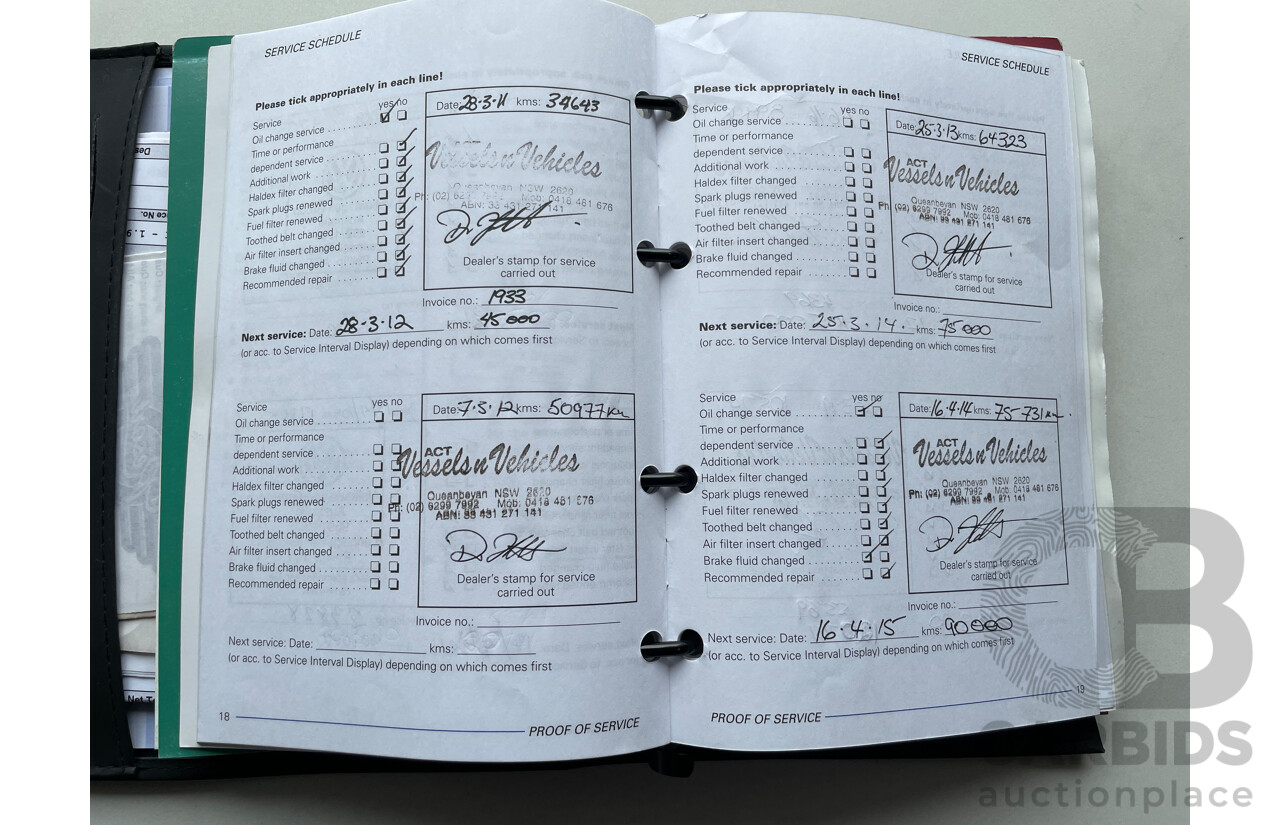 SERVICE SCHEDULE
Please tick appropriately in each line!
yes no
Service
Oil change service
Time or performance
dependent service
Additional work
Haldex filter changed
Spark plugs renewed
Fuel filter renewed
Toothed belt changed
Air filter insert changed
Brake fluid changed
Recommended repair
Date: 28·3·11 kms: 34643
Vessels n Vehicles
Queanbeyan NSW 2620
Ph: (02) 62 Mob: 0418 481 676
ABN: 33 431 271 141
Dealer's stamp for service
carried out
Invoice no.: 1933
Next service: Date: 28-3-12 kms: 45000
(or acc. to Service Interval Display) depending on which comes first
yes no
Service
Oil change service
Time or performance
dependent service
Additional work
Haldex filter changed
Spark plugs renewed
Fuel filter renewed
Toothed belt changed
Air filter insert changed
Brake fluid changed
Recommended repair
Date: 7·3·12 kms: 50977km
ACT
Vessels n Vehicles
Queanbeyan NSW 2620
Ph: (02) 6299 7992 Mob: 0418 481 676
ABN: 33 431 271 141
Dealer's stamp for service
carried out
Invoice no.:
Next service: Date: kms:
(or acc. to Service Interval Display) depending on which comes first
18
PROOF OF SERVICE
SERVICE SCHEDULE
Please tick appropriately in each line!
Service yes no
Oil change service
Time or performance
dependent service
Additional work
Haldex filter changed
Spark plugs renewed
Fuel filter renewed
Toothed belt changed
Air filter insert changed
Brake fluid changed
Recommended repair
Date: 25·3·13 kms: 64323
ACT
Vessels n Vehicles
Queanbeyan NSW 2620
Ph: (02) 6299 7992 Mob: 0418 481 676
ABN: 33 431 271 141
Dealer's stamp for service
carried out
Invoice no.:
Next service: Date: 25·3·14· kms: 75000
(or acc. to Service Interval Display) depending on which comes first
Service yes no
Oil change service
Time or performance
dependent service
Additional work
Haldex filter changed
Spark plugs renewed
Fuel filter renewed
Toothed belt changed
Air filter insert changed
Brake fluid changed
Recommended repair
Date: 16·4·14 kms: 75-731km
ACT
Vessels n Vehicles
Queanbeyan NSW 2620
Ph: (02) 6299 7992 Mob: 0418 481 676
ABN: 33 431 271 141
Dealer's stamp for service
carried out
Invoice no.:
Next service: Date: 16·4·15 kms: 90000
(or acc. to Service Interval Display) depending on which comes first
PROOF OF SERVICE
19
CARBIDS
auctionplace